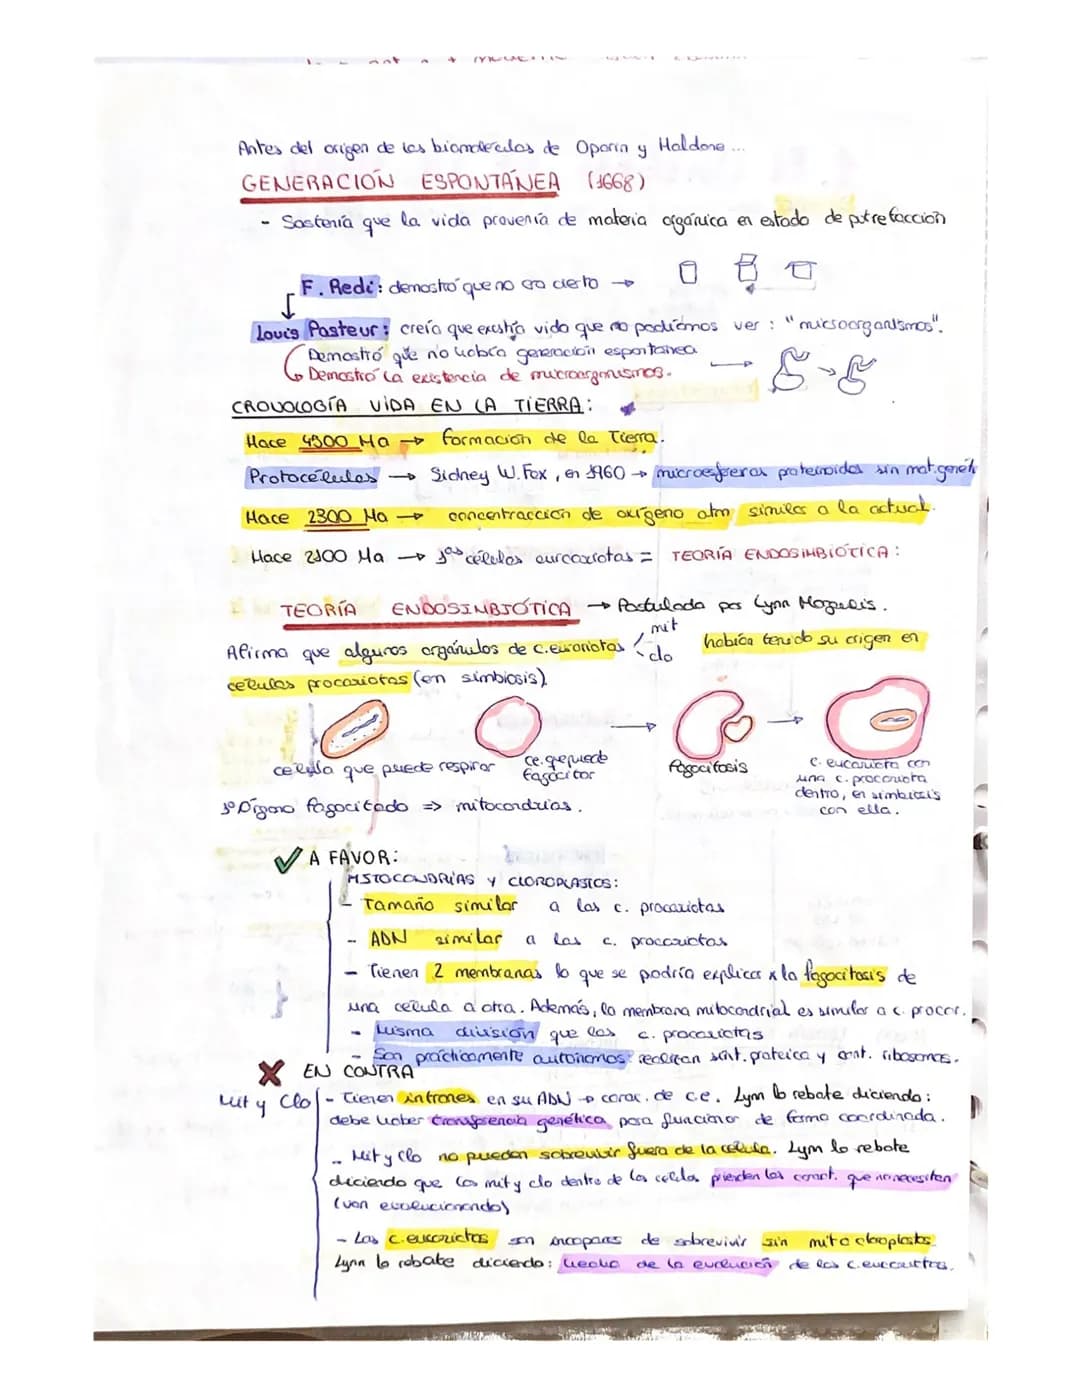 Antes del origen de las biomoleculas de Oparin y Haldane ...
GENERACIÓN ESPONTÁNEA (1668)
- Sostenía que la vida provenía de materia orgánica en estado de putrefacción
F. Redi: demostró que no era cierto →
Louis Pasteur: creía que existía vida que no podíamos ver: "microorganismos".
Demostró que no había generación espontanea →
Demostró la existencia de microorganismos.
CRONOLOGÍA VIDA EN LA TIERRA:
Hace 4500 Ma → formación de la Tierra.
Protocélulas → Sidney W. Fox, en 1960 → microesferas proteinoides sin mat. genét
Hace 2300 Ma → concentracción de oxígeno atm similar a la actual.
Hace 2100 Ma → 1ºs células eurcariotas = TEORÍA ENDOSIMBIÓTICA:
TEORÍA ENDOSIMBIÓTICA → Postulada por Lynn Margulis.
Afirma que algunos orgánulos de c. eucariotas mit clo habían tenido su origen en
celulas procariotas (en simbiosis)
celula que puede respirar
ce. que puede fagocitar
fagocitosis
c. eucariota con
una c. procariota
dentro, en simbiosis
con ella.
1º fagocitado => mitocondrias.
✓ A FAVOR:
MITOCONDRIAS Y CLOROPLASTOS:
- Tamaño similar a las c. procariotas
- ADN similar a las c. procariotas
- Tienen 2 membranas lo que se podría explicar x la fagocitosis de
una celula a otra. Además, la membrana mitocondrial es similar a c. procar.
- Misma división que las c. procariotas
- Son prácticamente autónomos: realizan sínt. proteica y cont. ribosomas.
X EN CONTRA
Mit y Clo - Tienen intrones en su ADN → carac. de c.e. Lynn lo rebate diciendo:
debe haber transferencia genética para funcionar de forma coordinada.
- Mit y clo no pueden sobrevivir fuera de la celula. Lynn lo rebate
diciendo que las mit y clo dentro de las celulas pierden las caract. que no necesitan
(van evolucionando)
- Las c. eucariotas son incapaces de sobrevivir sin mit o cloroplastos.
Lynn lo rebate diciendo: hecho de la evolución de las c. eucariotas.